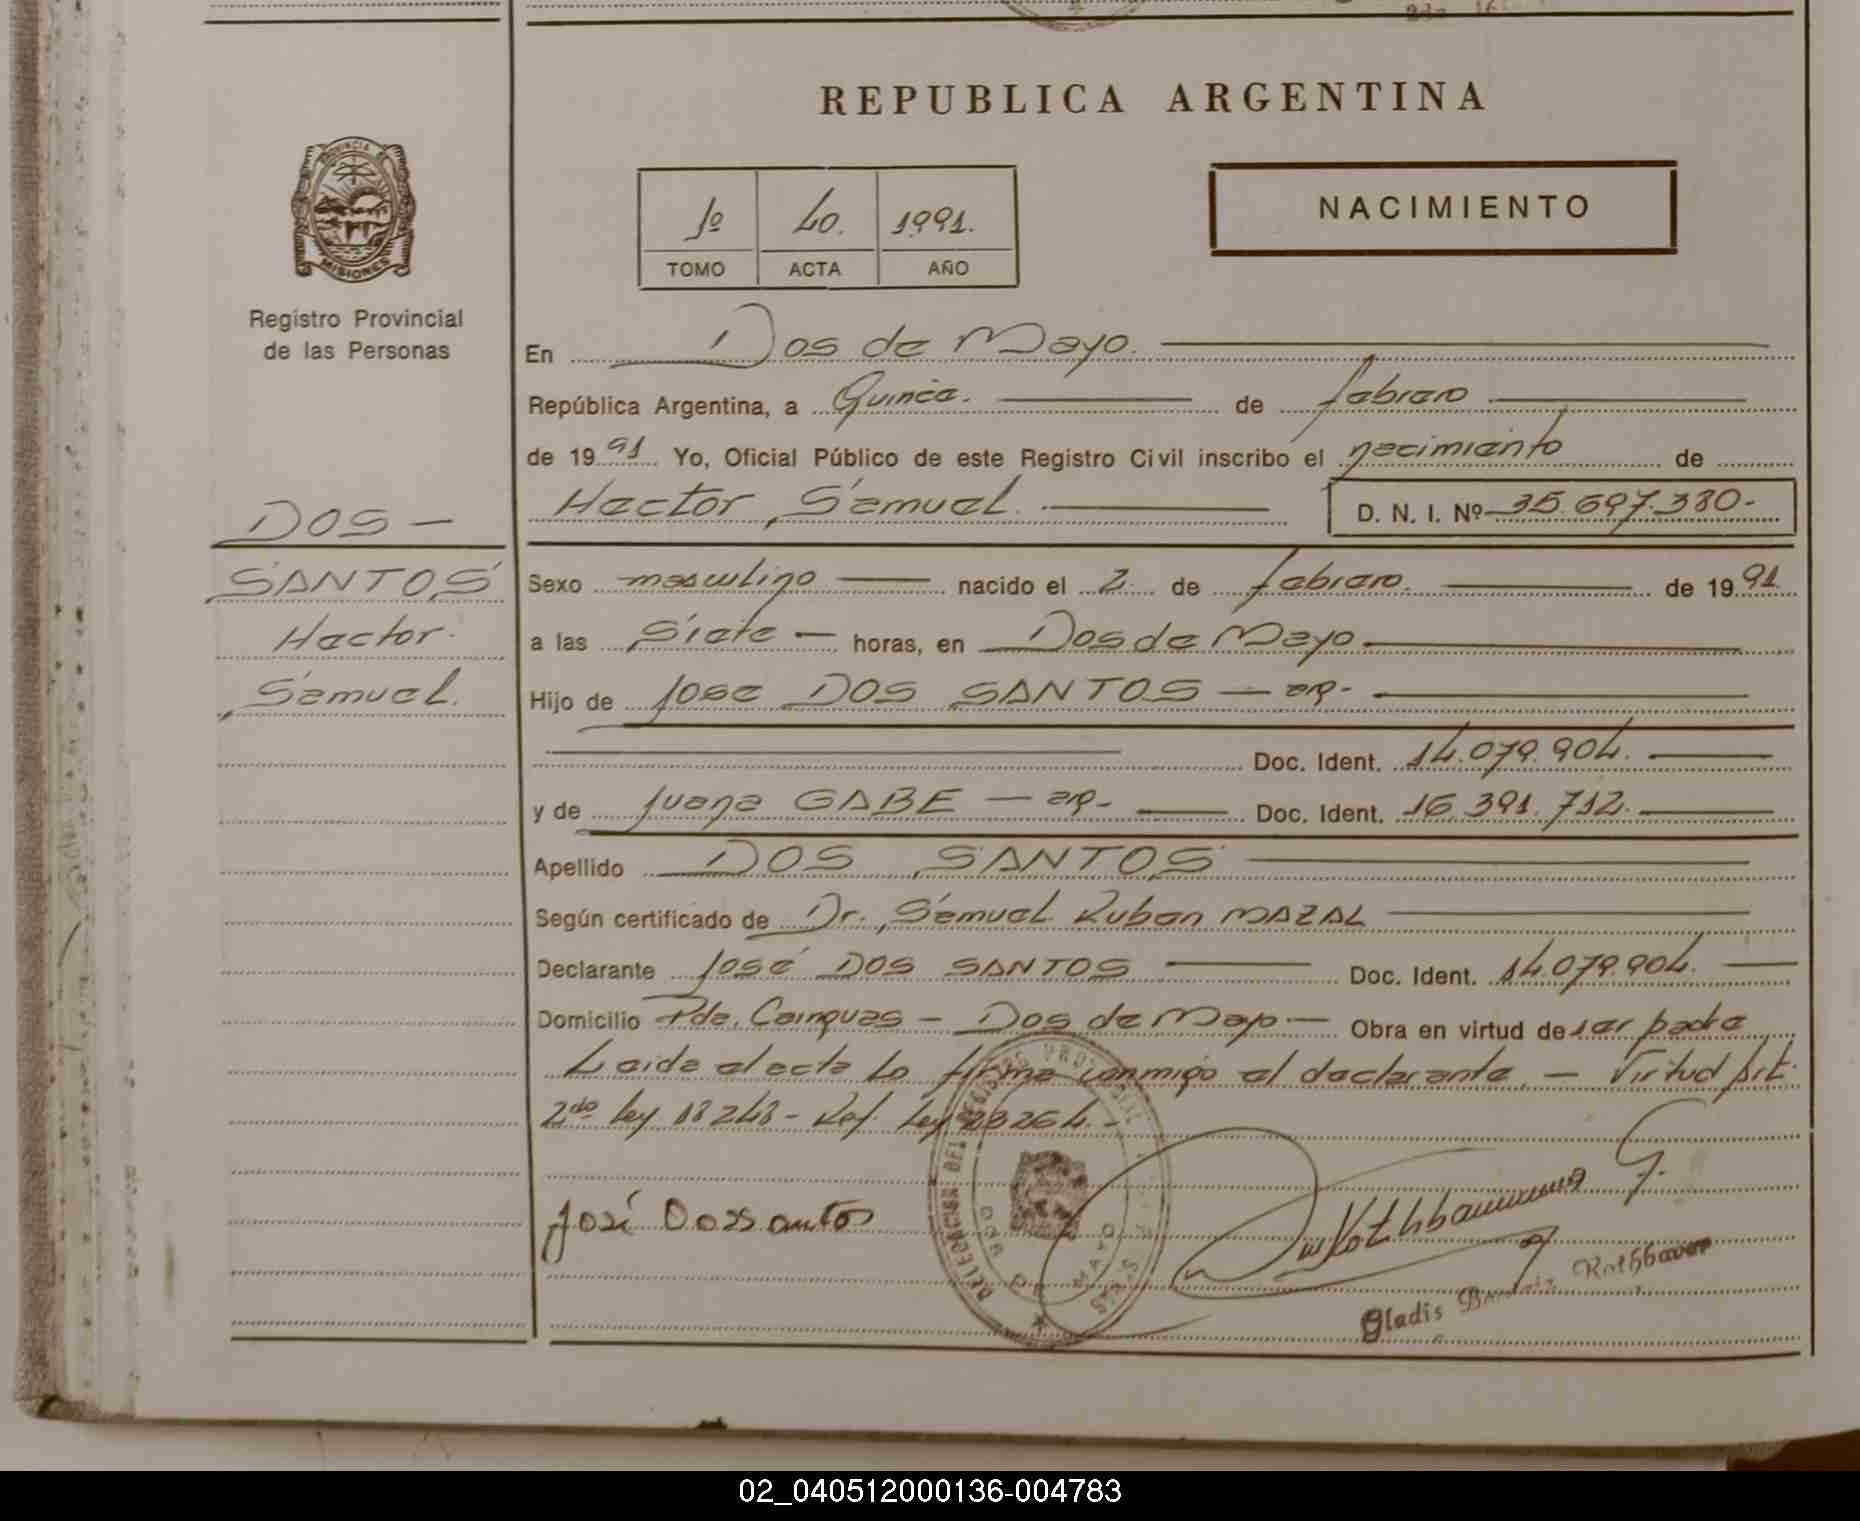 REPUBLICA ARGENTINA
PROVINCIA DE
MISIONES
Registro Provincial
de las Personas
1º 40. 1991.
TOMO ACTA AÑO
NACIMIENTO
En Dos de Mayo.
República Argentina, a Quince. de febrero
de 1991 Yo, Oficial Público de este Registro Civil inscribo el nacimiento de
Hector Samuel. D. N. I. Nº 35.697.380-
DOS -
SANTOS
Hector
Samuel.
Sexo masculino nacido el 2 de febrero. de 1991
a las Siete - horas, en Dos de Mayo
Hijo de Jose DOS SANTOS - arg-
Doc. Ident. 14.079.904.
y de Juana GABE - arg- Doc. Ident. 16.391.712.
Apellido DOS SANTOS
Según certificado de Dr. Samuel Ruben MAZAL
Declarante José DOS SANTOS Doc. Ident. 14.079.904.
Domicilio Pde. Cainguas - Dos de Mayo - Obra en virtud de ser padre
Leida el acta la firma conmigo el declarante. - Virtud Art.
2do Ley 18248 - Ref. Ley 23264.-
José Dos santos
DELEGACION DEL REGISTRO PROVINCIAL
DOS DE MAYO
Rothbauer G.
Gladis Rothbauer
02_040512000136-004783